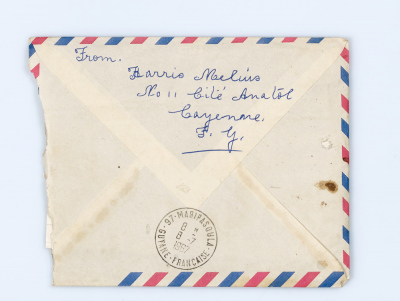 From.
Harris Melius
No 11 Cité Anatol
Cayenne.
F. G.
97-MARIPASOULA
8
8
GUYANE-FRANÇAISE